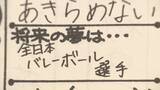 あきらめない
将来の夢は…
全日本
バレーボール
選手